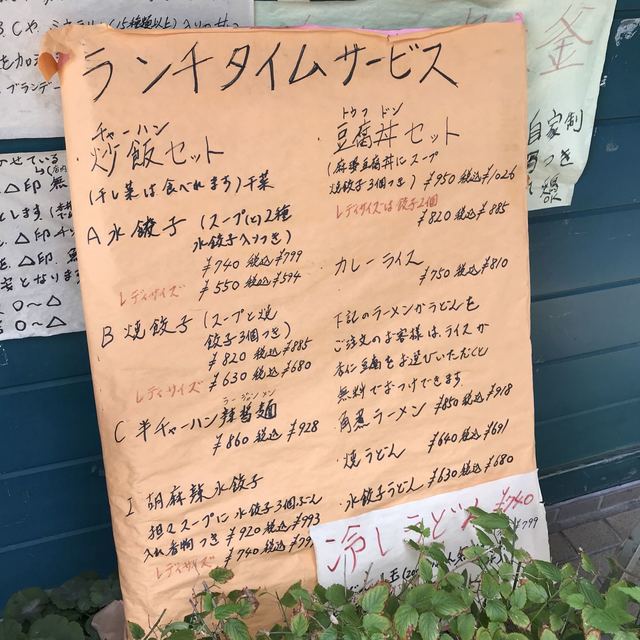 ランチタイムサービス
チャーハン
炒飯セット
(干し菜は食べれます)干菜
A 水餃子 (スープと2種
水餃子入つき)
¥740 税込 ¥799
レディサイズ ¥550 税込 ¥594
B 焼餃子 (スープと焼
餃子3個つき)
¥820 税込 ¥885
レディサイズ ¥630 税込 ¥680
C 半チャーハン辣醤麺
¥860 税込 ¥928
I 胡麻辣水餃子
担々スープに水餃子3個
入れ香物つき ¥920 税込 ¥993
レディサイズ ¥740 税込
トウフ ドン
・豆腐丼セット
(麻婆豆腐丼にスープ
焼餃子3個つき) ¥950 税込 ¥1026
レディサイズは餃子2個
¥820 税込 ¥885
カレーライス
¥750 税込 ¥810
下記のラーメンかうどんを
ご注文のお客様は、ライスか
杏仁豆腐をお選びいただくと
無料でおつけできます
・角煮ラーメン ¥850 税込 ¥918
・焼うどん ¥640 税込 ¥691
・水餃子うどん ¥630 税込 ¥680
冷しうどん ¥740
¥799
釜
自家制
つき
ブランデー
せている
△印 無
とします
△印
となりま
〇〜△
〇〜△